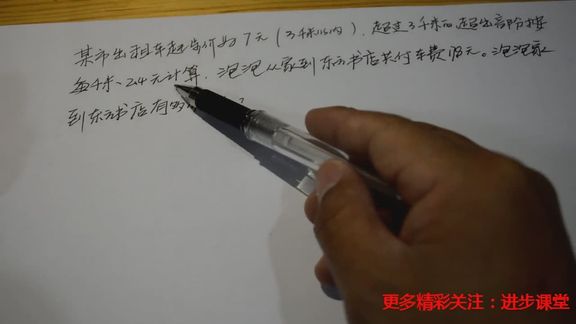 某市出租车起步价为7元(3千米以内),超过3千米的超出部份按
每千米、2.4元计算,泡泡从家到东方书店共付车费
到东方书店有
更多精彩关注：进步课堂